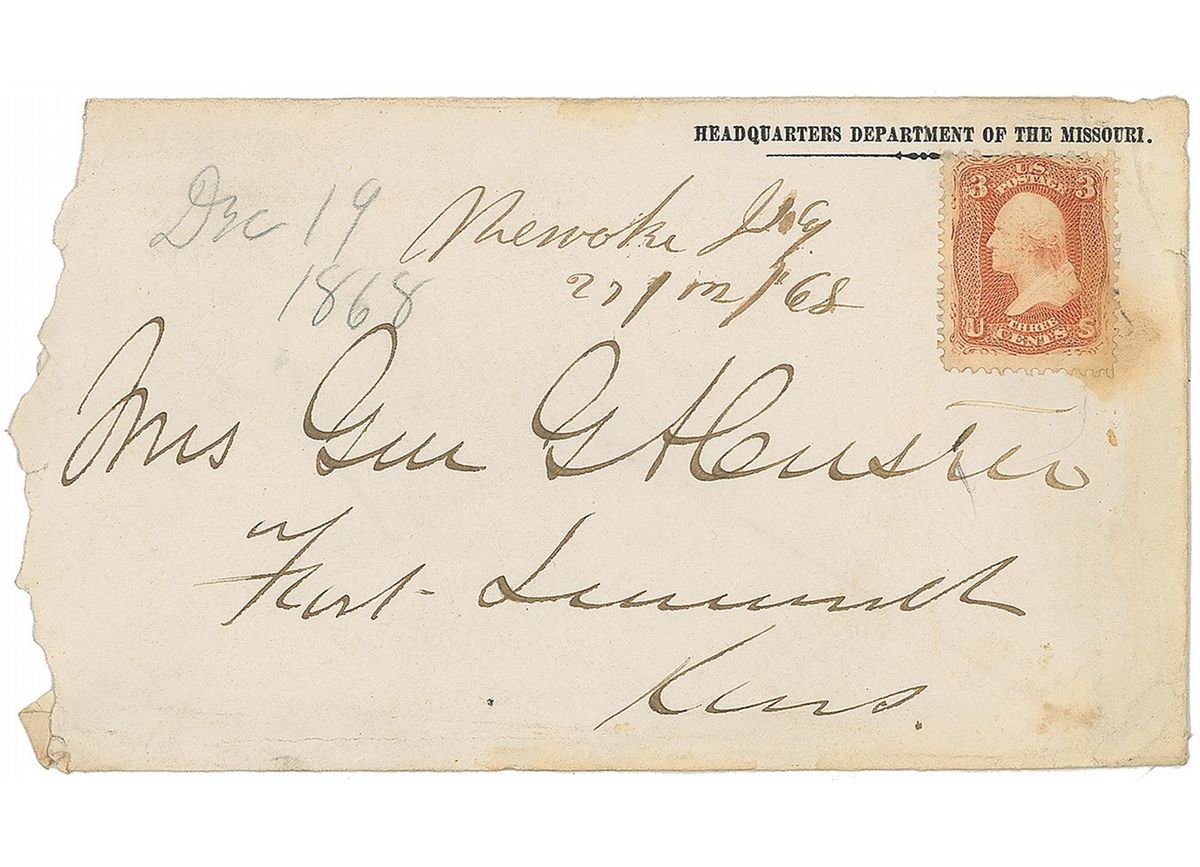 HEADQUARTERS DEPARTMENT OF THE MISSOURI.
3 U.S. POSTAGE 3
U THREE CENTS S
Dec 19
1868
27/12/68
Mrs Gen G A Custer
Fort
Kans.